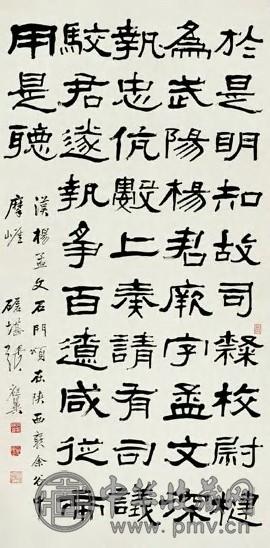 於是明知故司隸校尉楗
為武陽楊君厥字孟文深
執忠伉數上奏請有司議
駮君遂執爭百遼咸從帝
用是聽
漢楊孟文石門頌在陝西褒余谷
摩崖 磊堪張祖翼
www.pmv.cn